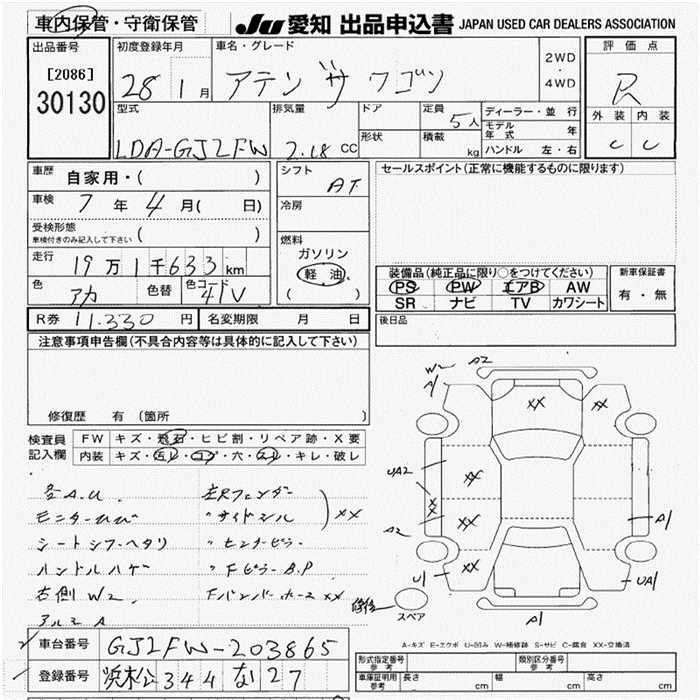 車内保管・守衛保管 JU 愛知 出品申込書 JAPAN USED CAR DEALERS ASSOCIATION
出品番号 初度登録年月 車名・グレード 評価点
[2086] 30130 28 1月 アテンザワゴン 2WD・4WD R
型式 排気量 ドア 定員 5人 ディーラー・並行 外装 内装
形状 積載 kg モデル年式 年 C C
LDA-GJ2FW 2.18 CC ハンドル 左・右
車歴 自家用・( ) シフト AT セールスポイント(正常に機能するものに限ります)
車検 7年 4月( 日) 冷房
受検形態 車検付きのみ記入して下さい ( )
燃料 ガソリン 軽油 ( )
走行 19万1千633km
装備品(純正品に限り○をつけてください) 新車保証書
色 アカ 色替 色コード 41V PS PW エアB AW 有・無
SR ナビ TV カワシート
R券 11,330円 名変期限 月 日 後日品
注意事項申告欄(不具合内容等は具体的に記入して下さい)
修復歴 有 (箇所
検査員記入欄 FW キズ・飛石・ヒビ割・リペア跡・X要
内装 キズ・汚レ・コゲ・穴・スレ・キレ・破レ
各A.U. 左Rフェンダー
モニターひび 〃サイドシル XX
シートシワ・ヘタリ 〃センターピラー
ハンドルハゲ 〃FピラーB.P
右側W2 Fバンパーホースメント XX
アルミA
W2 A2
A1
XX XX
UA2 XX
XX
A2 XX A1
U1 XX UA1
修復 スペア A1
A-キズ E-エクボ U-凹み W-補修跡 S-サビ C-腐食 XX-交換済
車台番号 GJ2FW-203865
登録番号 浜松 344 な 27
形式指定番号 参考 類別区分番号 参考
車庫証明用参考 長さ cm 幅 cm 高さ cm